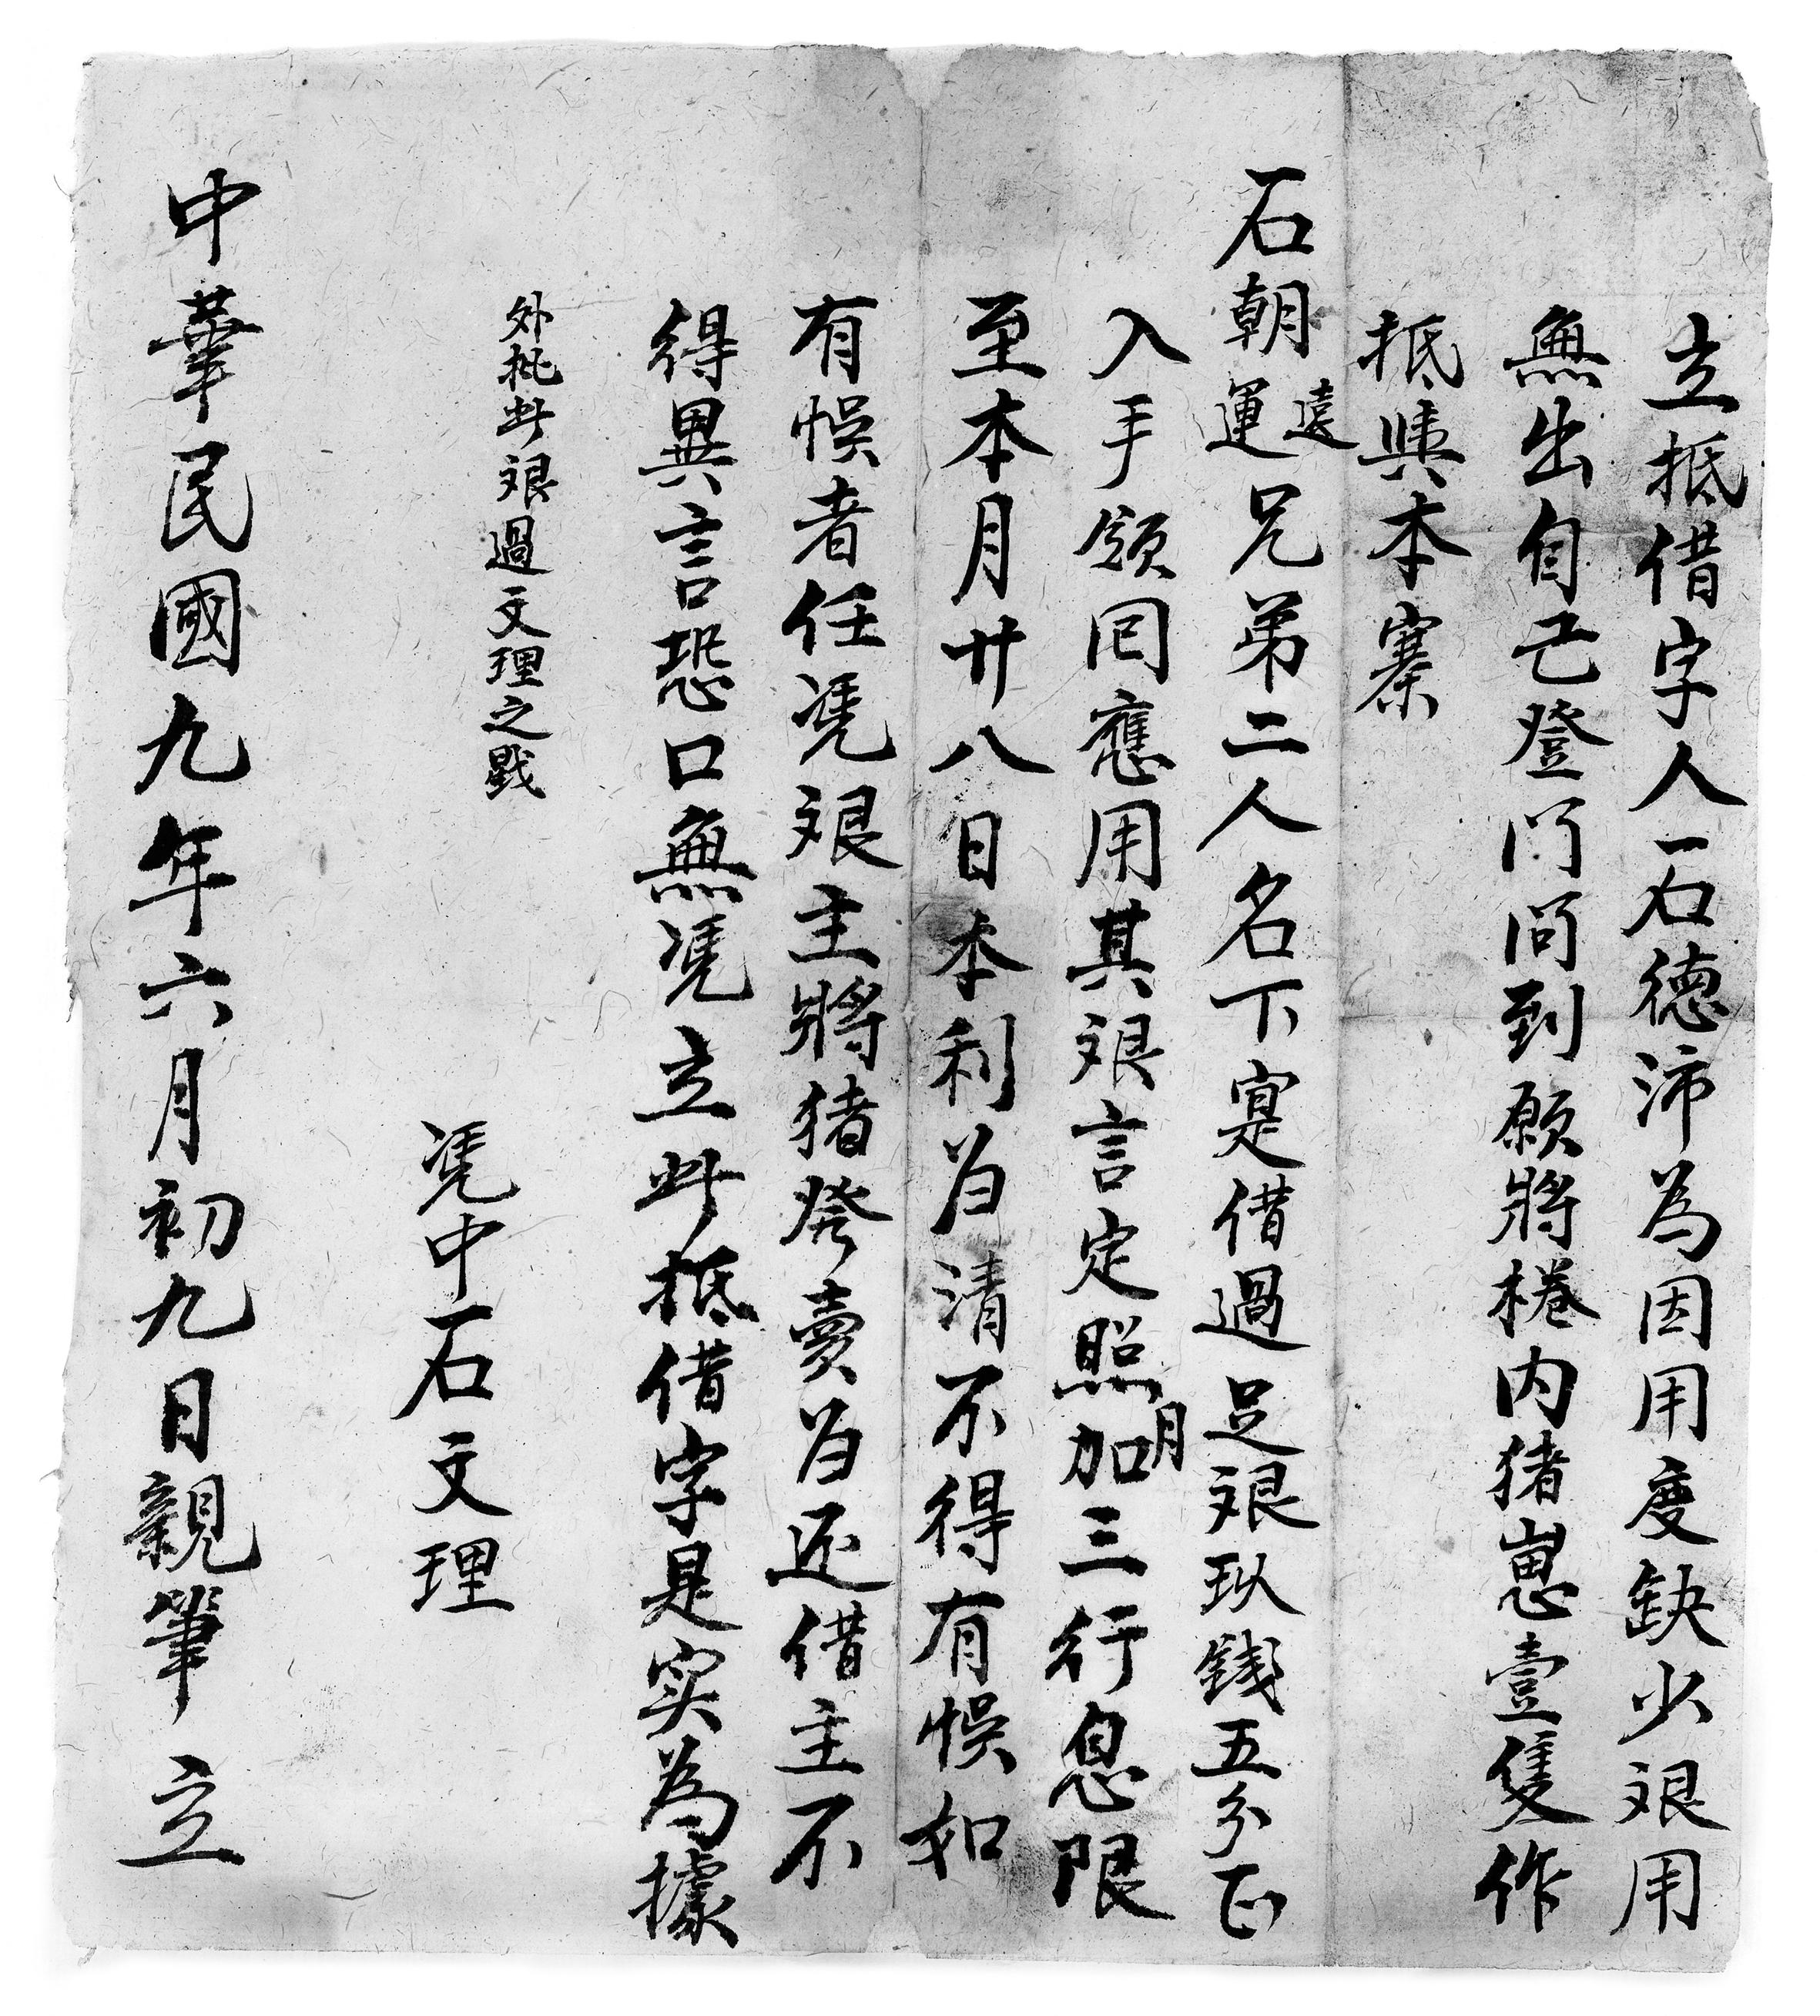 立抵借字人石德沛為因用度缺少艮用
無出自己登门问到願將棬内猪崽壹隻作
抵與本寨
石朝運遠兄弟二人名下寔借過足艮玖錢五分正
入手領囘應用其艮言定照月加三行息限
至本月廿八日本利为清不得有悞如
有悞者任凴艮主將猪發賣为还借主不
得異言恐口無凴立此抵借字是实為據
外批此艮過文理之戥
凴中石文理
中華民國九年六月初九日親筆立